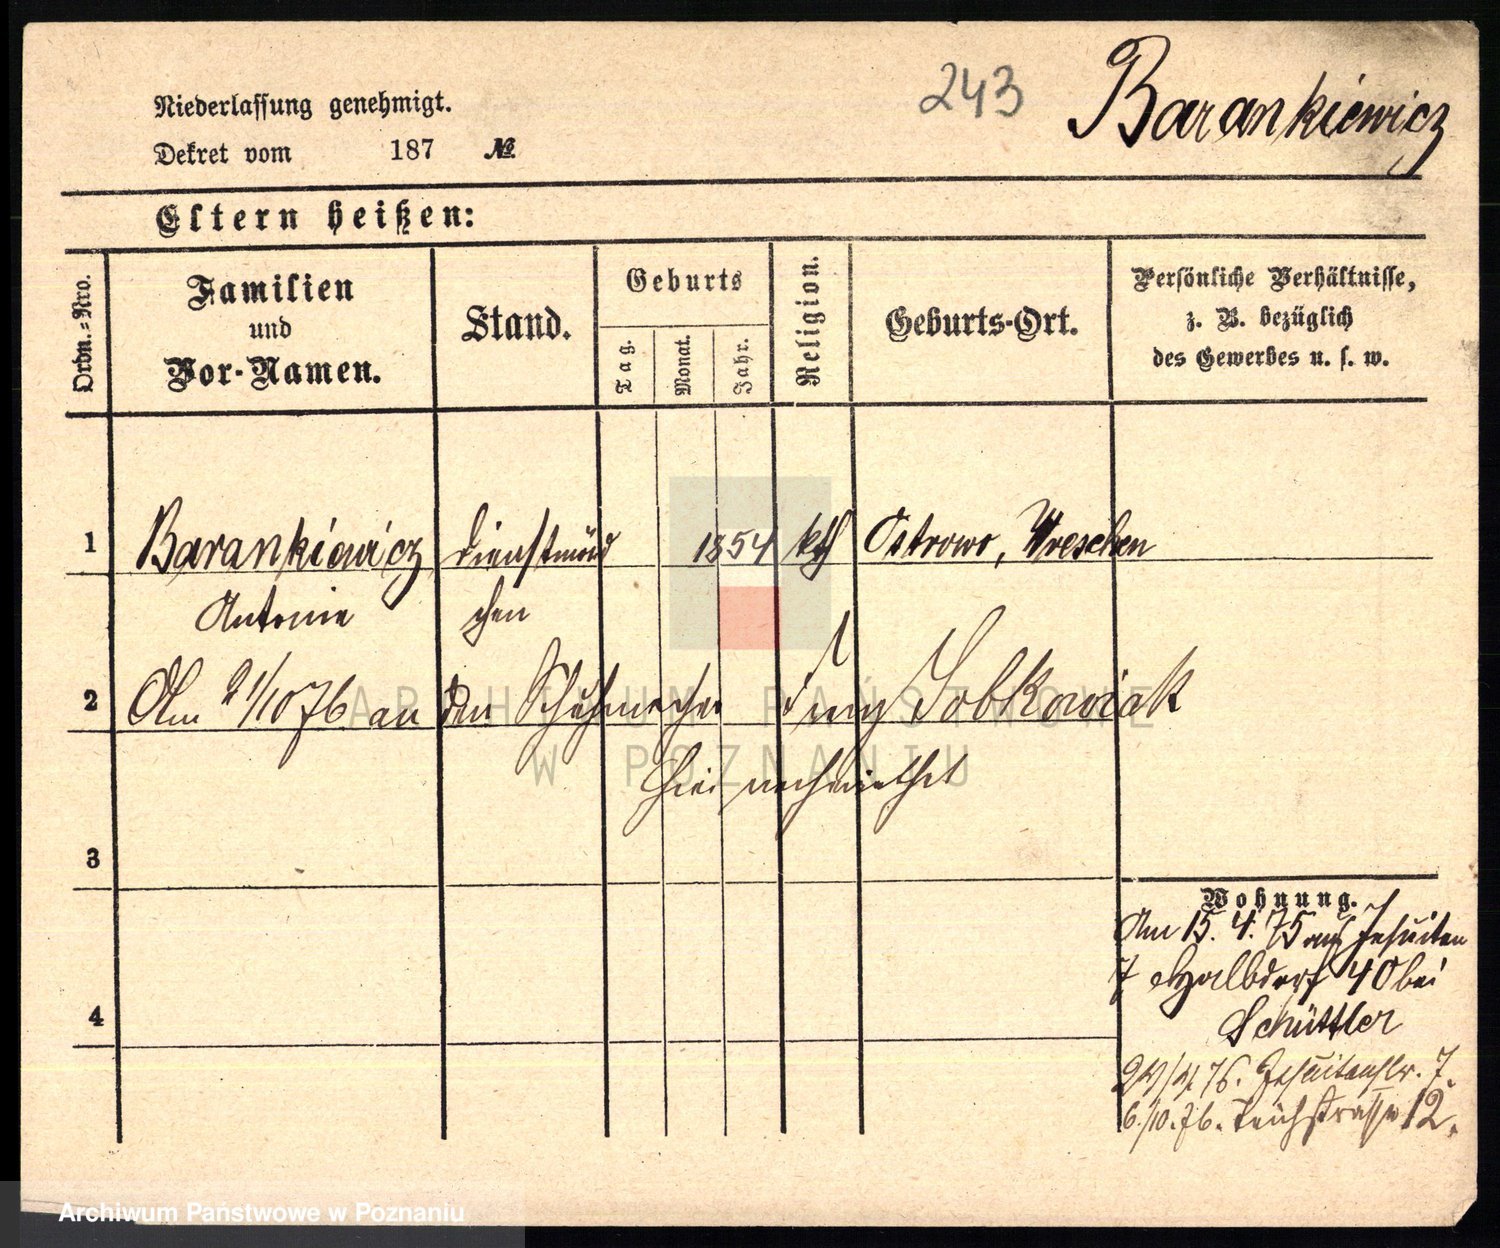 243
Barankiewicz
Niederlassung genehmigt.
Dekret vom 187 №
Eltern heißen:
Ordn.=Nro.
Familien
und
Vor-Namen.
Stand.
Geburts
Tag.
Monat.
Jahr.
Religion.
Geburts-Ort.
Persönliche Verhältnisse,
z. B. bezüglich
des Gewerbes u. s. w.
1 Barankiewicz Dienstmäd 1854 kth Ostrowo, Wreschen
Antonie chen
2 Am 21/10 76 an den Schuhmacher Sobkowiak
hier
3
Wohnung.
Am 15. 4. 75 aus Jesuiten
7 Halbdorf 40 bei
4
Schüttler
76. Jesuitenstr. 7.
6/10. 76. Teichstrasse 12.
ARCHIWUM PAŃSTWOWE
W POZNANIU
Archiwum Państwowe w Poznaniu